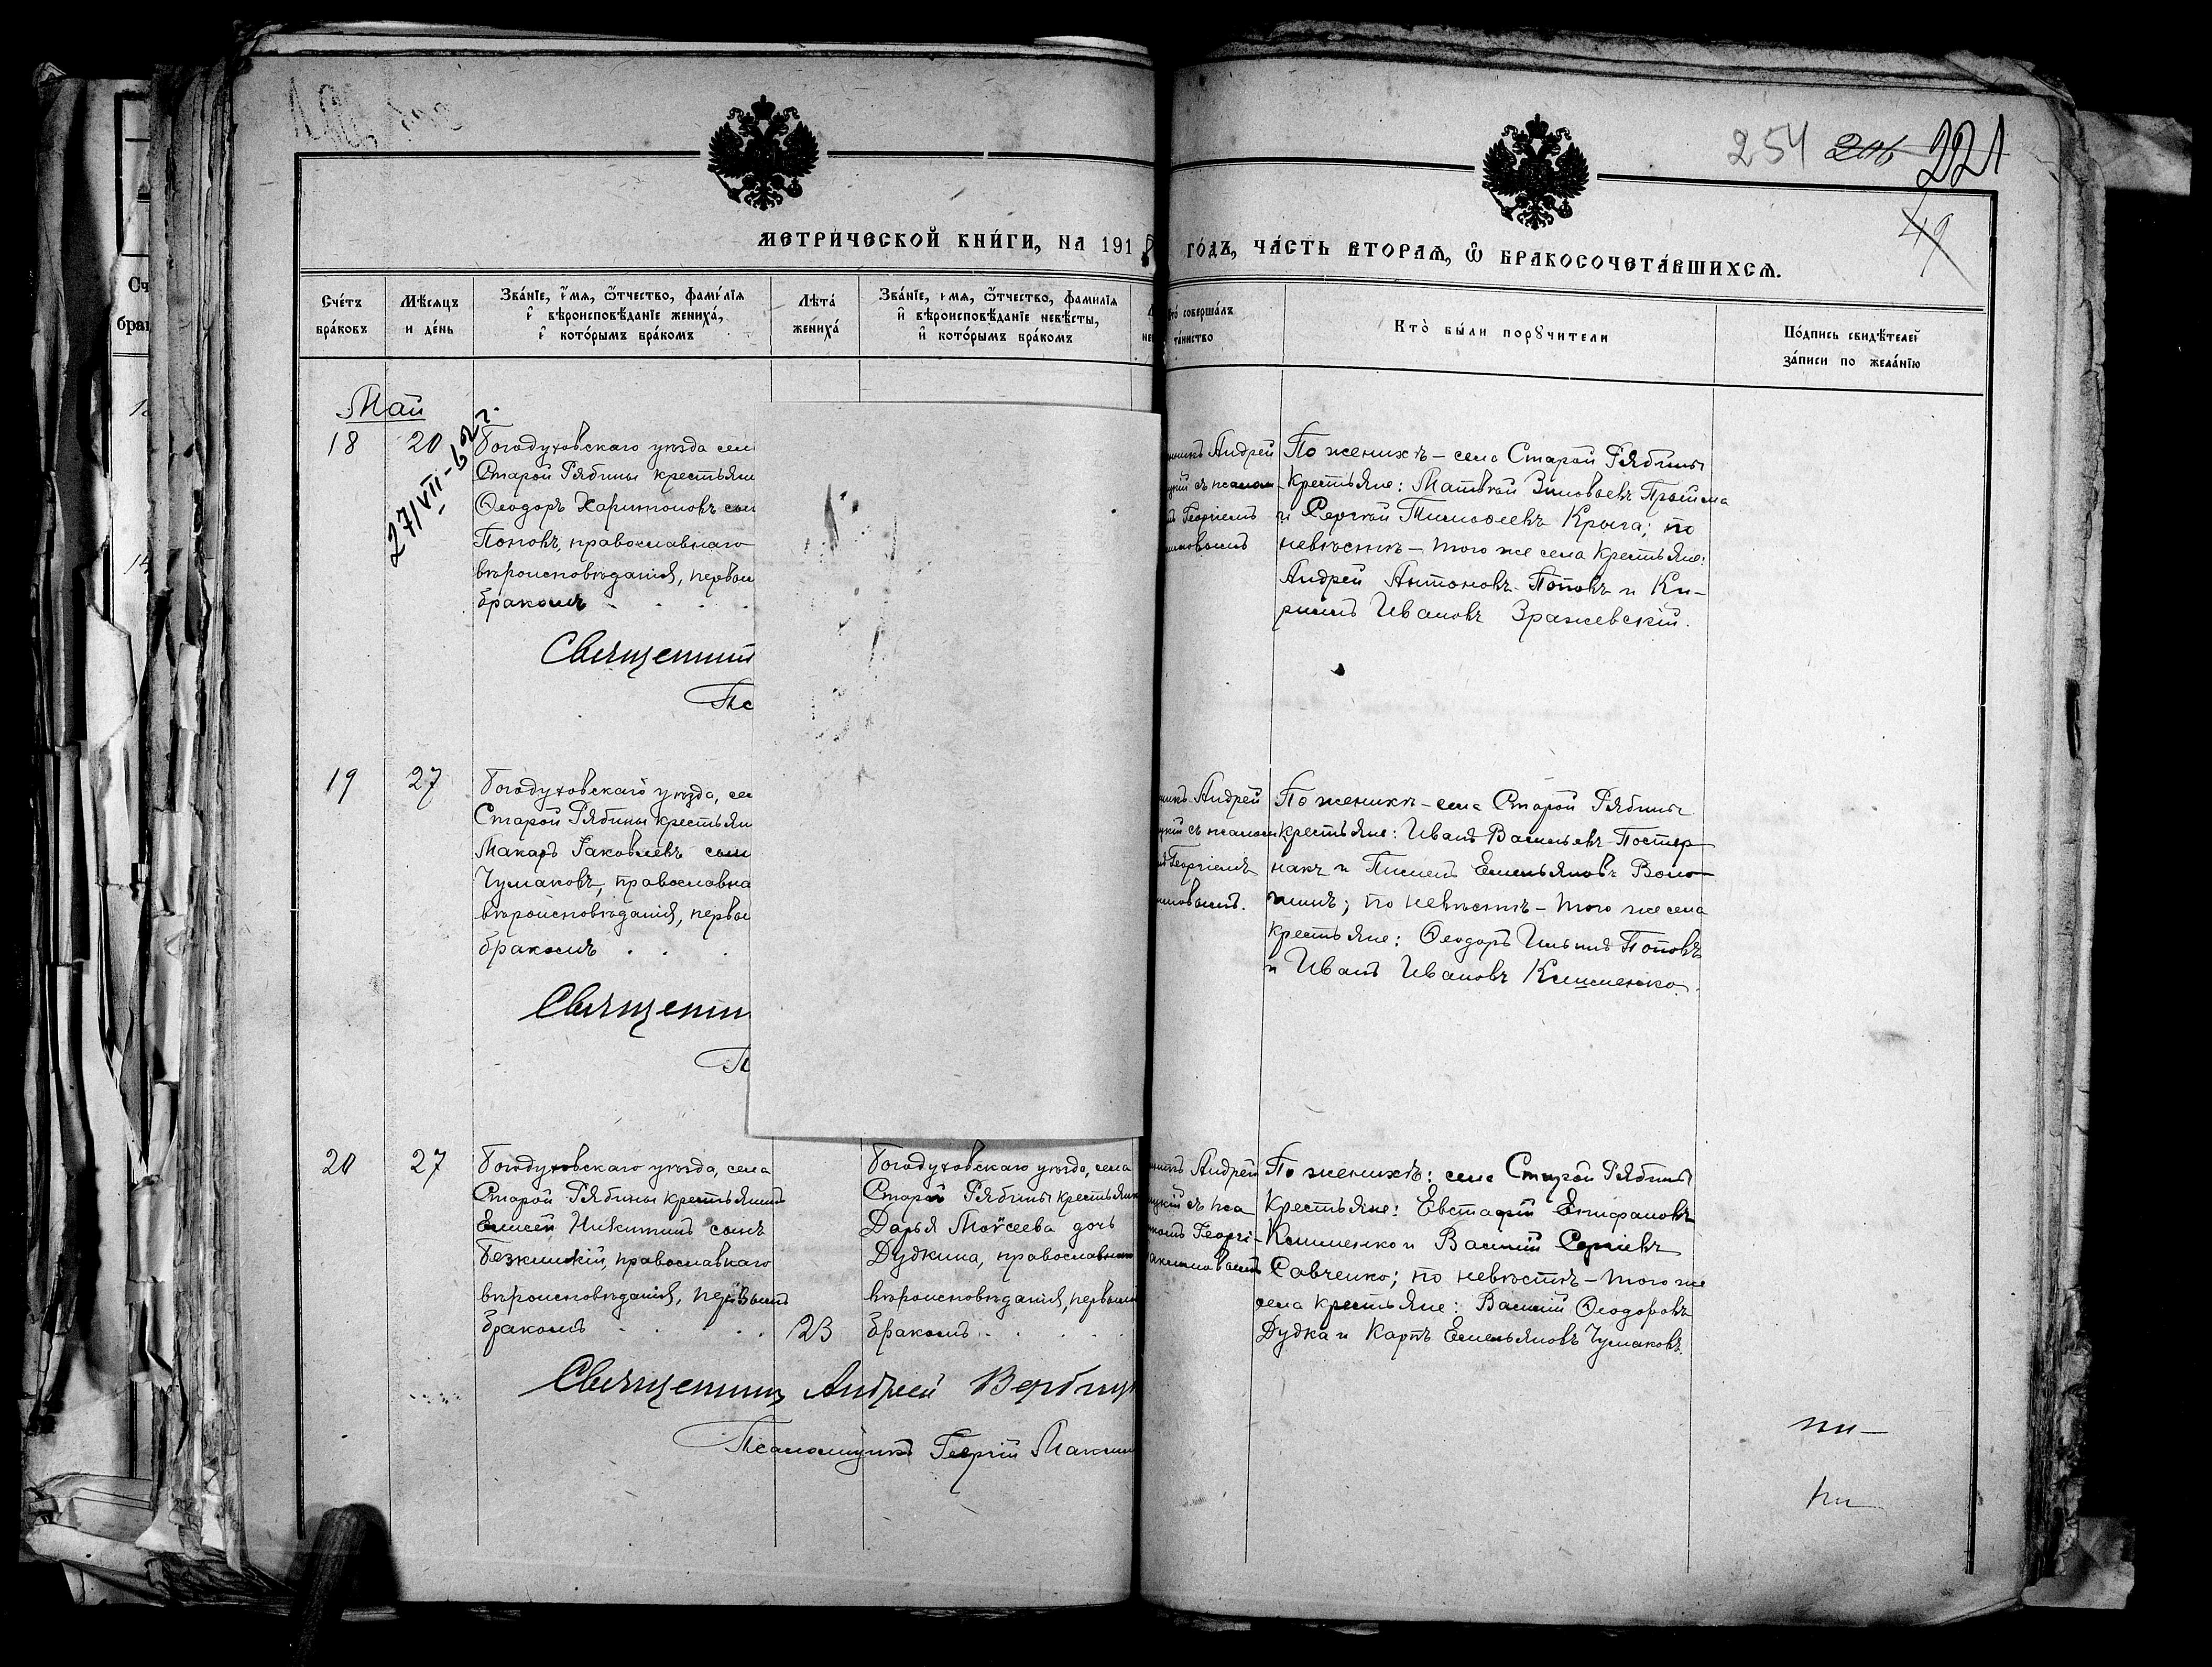 254 206 221
49
МЕТРИЧЕСКОЙ КНИГИ, НА 1915 ГОДЪ, ЧАСТЬ ВТОРАЯ, Ѡ БРАКОСОЧЕТАВШИХСЯ.
Счетъ браковъ
Мѣсяцъ и день
Званіе, имя, ѿтчество, фамилія и вѣроисповѣданіе жениха, и которымъ бракомъ
Лѣта жениха
Званіе, имя, ѿтчество, фамилія и вѣроисповѣданіе невѣсты, и которымъ бракомъ
совершалъ таинство
Кто были порꙋчители
Подпись свидѣтелей записи по желанію
Май
18
20
27/VII-62 г.
Богодуховскаго уѣзда сел
Старой Рябины крестьян
Ѳеодоръ Харитоновъ сын
Поповъ, православнаго
вѣроисповѣданія, первы
бракомъ
Священни
Пс
Андрей
съ псалом-
Георгіемъ
По женихѣ – села Старой Рябины
крестьяне: Матвѣй Зиновьевъ Прийма
и Сергѣй Тимоѳеевъ Крыга; по
невѣстѣ – того же села крестьяне:
Андрей Антоновъ Поповъ и Ки-
риллъ Ивановъ Зражевскій.
19
27
Богодуховскаго уѣзда, се
Старой Рябины крестьян
Макаръ Іаковлевъ сын
Чумаковъ, православна
вѣроисповѣданія, первы
бракомъ
Священни
П
Андрей
съ псалом
Георгіемъ
По женихѣ – села Старой Рябины
крестьяне: Иванъ Васильевъ Постер-
накъ и Пименъ Емельяновъ Воло-
жинъ; по невѣстѣ – того же села
крестьяне: Ѳеодоръ Ильинъ Поповъ
и Иванъ Ивановъ Клименко.
20
27
Богодуховскаго уѣзда, села
Старой Рябины крестьянинъ
Елисей Никитинъ сынъ
православнаго
вѣроисповѣданія, первымъ
бракомъ
23
Богодуховскаго уѣзда, села
Старой Рябины крестьянк
Дарья Моѵсеева дочь
Дудкина, православнаго
вѣроисповѣданія, первымъ
бракомъ
Священникъ Андрей Вербиц
Псаломщикъ Георгій Максим
Андрей
съ пса
Георгі-
По женихѣ: села Старой Рябины
крестьяне: Евстафій Епифановъ
Клименко и Василій Сергіевъ
Савченко; по невѣстѣ – того же
села крестьяне: Василій Ѳеодоровъ
Дудка и Карпъ Емельяновъ Чумаковъ.